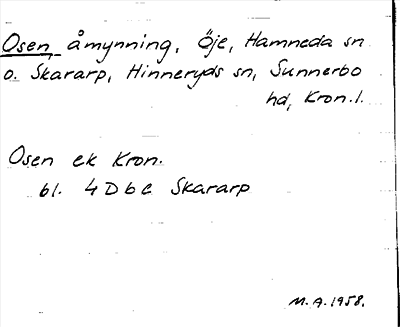 Osen, åmynning, Öje, Hamneda sn
o. Skararp, Hinneryds sn, Sunnerbo
hd, Kron. l.
Osen ek Kron.
bl. 4 D b c Skararp
M. A. 1958.